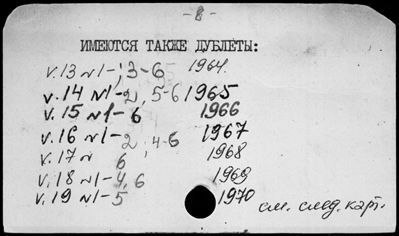 -8-
ИМЕЮТСЯ ТАКЖЕ ДУБЛЕТЫ:
v.13 №1-; 3-6 1964.
v.14 №1-2, 5-6 1965
v.15 №1-6 1966
v.16 №1-2, 4-6 1967
v.17 № 6 1968
v.18 №1-4, 6 1969
v.19 №1-5 1970
см. след. карт.